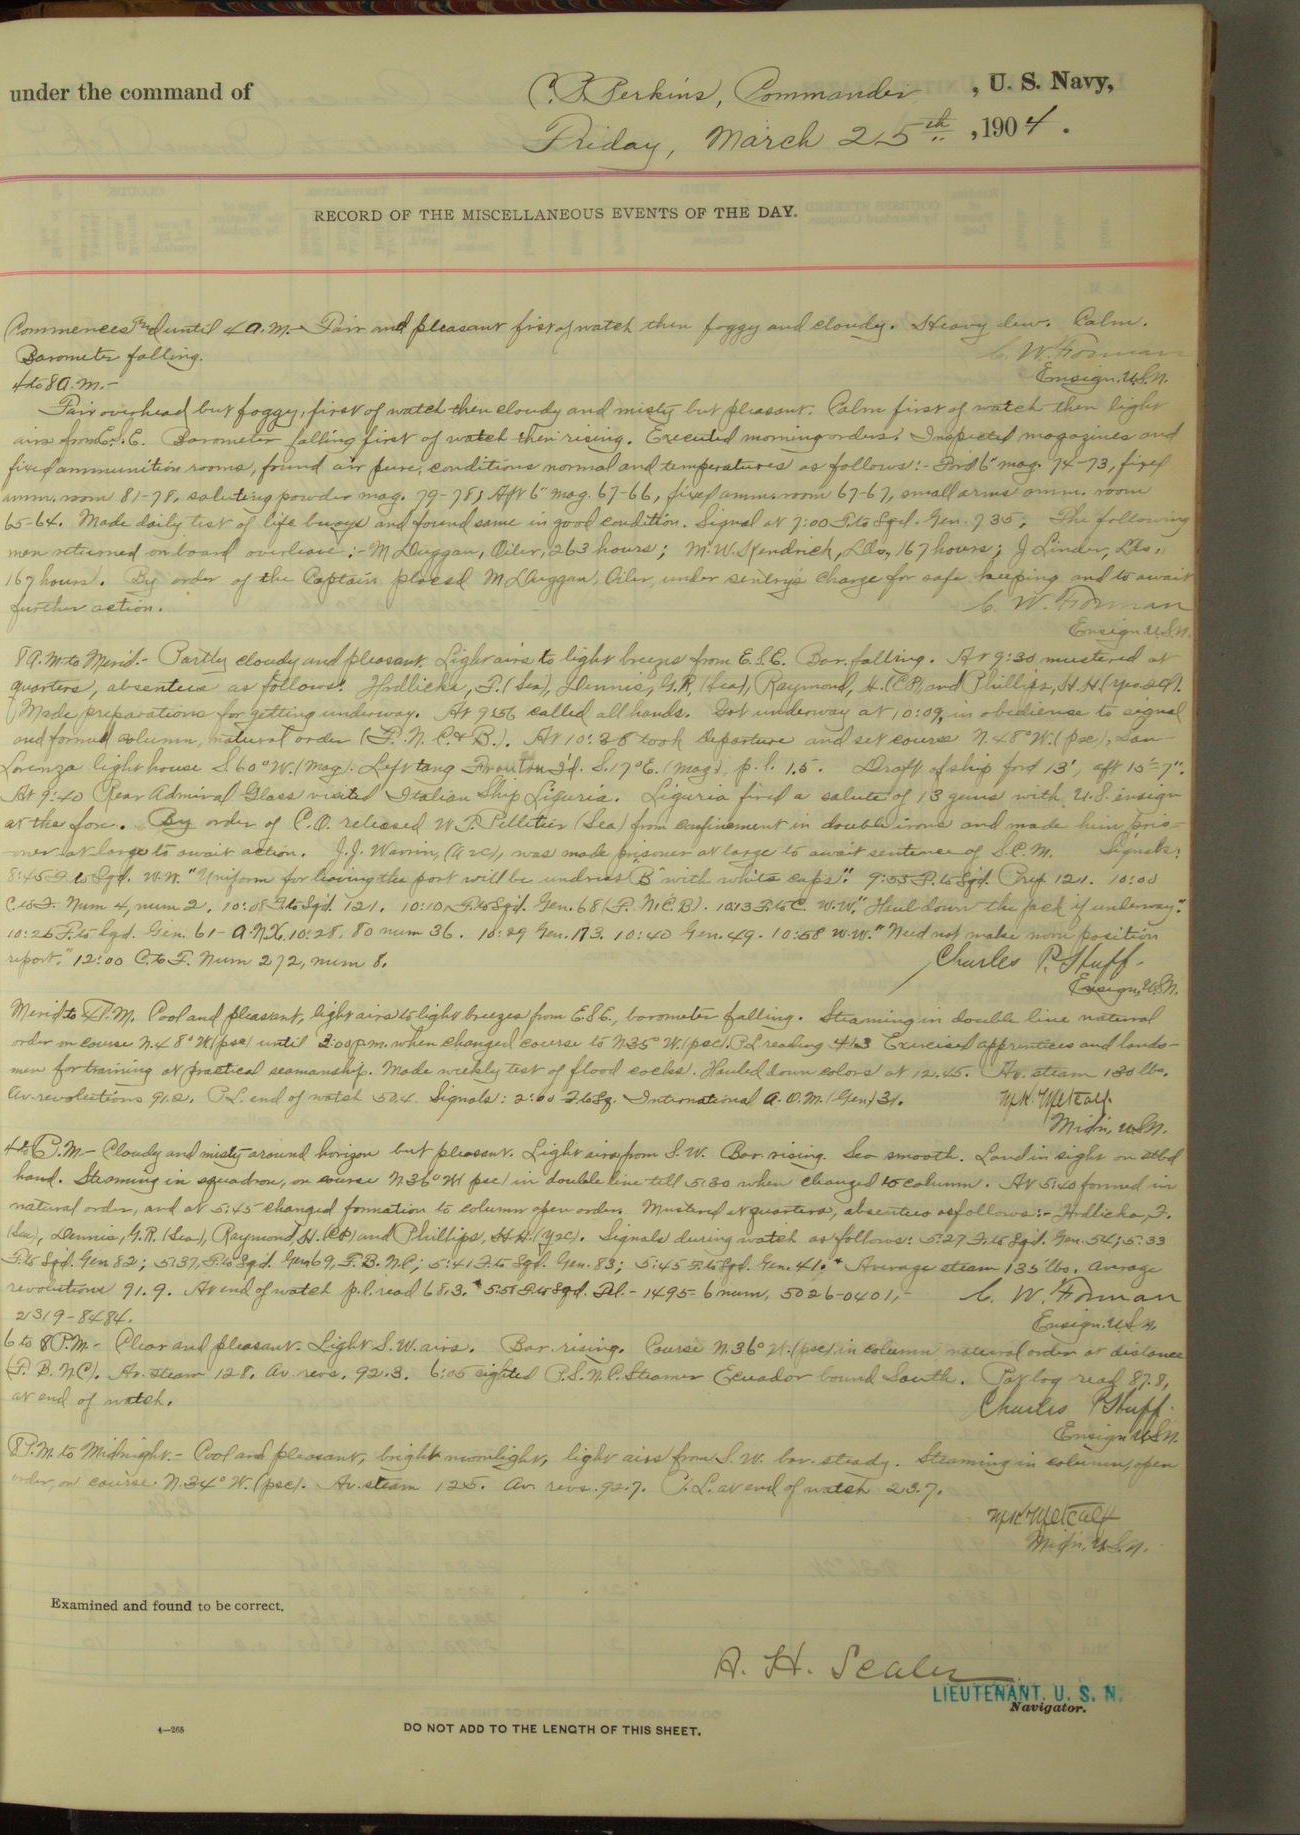 under the command of C. P. Perkins, Commander, U. S. Navy,
Friday, March 25th, 1904.
RECORD OF THE MISCELLANEOUS EVENTS OF THE DAY.
Commences and until 4 A.M.- Fair and pleasant first of watch then foggy and cloudy. Heavy dew. Calm.
Barometer falling.
C. W. Forman
Ensign, U.S.N.
4 to 8 A.M.-
Fair overhead but foggy, first of watch then cloudy and misty but pleasant. Calm first of watch then light
airs from E.S.E. Barometer falling first of watch then rising. Executed morning orders. Inspected magazines and
fixed ammunition rooms, found air pure, conditions normal and temperatures as follows:- Fwd 6" mag. 74-73, fixed
amm. room 81-78, saluting powder mag. 79-78; Aft 6" mag. 67-66, fixed amm. room 67-67, small arms amm. room
65-64. Made daily test of life buoys and found same in good condition. Signal at 7:00 F. to Sqd. Gen. 735. The following
men returned on board overleave:- M Duggan, Oiler, 263 hours; M. W. Kendrick, Lds., 167 hours; J Linder, Lds.,
167 hours. By order of the Captain placed M Duggan, Oiler, under sentry's charge for safe keeping and to await
further action.
C. W. Forman
Ensign U.S.N.
8 A.M. to Merid.- Partly cloudy and pleasant. Light airs to light breezes from E.S.E. Bar. falling. At 9:30 mustered at
quarters, absentees as follows: Hrdlicka, F. (Sea), Dennis, G.R. (Sea), Raymond, H. (CP) and Phillips, H. H. (Yeo. 2c).
Made preparations for getting underway. At 9:56 called all hands. Got underway at 10:09, in obedience to signal
and formed column, natural order (F. N. C. & B.). At 10:38 took departure and set course N. 48° W. (psc), San
Lorenzo light house S 60° W. (mag). Left tang Fronton I'd. S. 17° E. (mag), p. l. 1.5. Draft of ship ford 13', aft 15'-7".
At 9:40 Rear Admiral Glass visited Italian Ship Liguria. Liguria fired a salute of 13 guns with U.S. ensign
at the fore. By order of C.O. released W. P. Pelletier (Sea) from confinement in double irons and made him pris-
oner at large to await action. J. J. Warrin, (A 2c), was made prisoner at large to await sentence of S.C.M. Signals:
8:45 F. to Sqd. W.W. "Uniform for leaving the port will be undress "B" with white caps". 9:55 F. to Sqd. Prep 121. 10:00
C. to F. Num 4, num 2. 10:08 F. to Sqd. 121. 10:10, F. to Sqd. Gen. 68 (F. N. C. B). 10:13 F. to C. W.W. "Haul down the jack if underway".
10:26 F. to Sqd. Gen. 61- A.N.X, 10:28. 80 num 36. 10:29 Gen. 173. 10:40 Gen. 49. 10:58 W.W. "Need not make noon position
report." 12:00 C. to F. Num 272, num 8.
Charles P. Huff.
Ensign, U.S.N.
Merid. to 4 P.M. Cool and pleasant, light airs to light breezes from E.S.E., barometer falling. Steaming in double line natural
order on course N. 48° W. (psc) until 2:00 p.m. when changed course to N 35° W. (psc). P.L. reading 41.3 Exercised apprentices and lands-
men for training at practical seamanship. Made weekly test of flood cocks. Hauled down colors at 12.45. Av. steam 130 lbs.
Av. revolutions 91.2. P.L. end of watch 50.4. Signals: 2:00 F. to Sq. International A.O.M. (Gen) 31.
M.K. Metcalf
Midn, U.S.N.
4 to 6 P.M.- Cloudy and misty around horizon but pleasant. Light airs from S.W. Bar. rising. Sea smooth. Land in sight on stbd
hand. Steaming in squadron, on course N 36° W (psc) in double line till 5:30 when changed to column. At 5:40 formed in
natural order, and at 5:45 changed formation to column open order. Mustered at quarters, absentees as follows:- Hrdlicka, F.
(Sea), Dennis, G. R. (Sea), Raymond, H. (CP) and Phillips, H. H. (Y2c). Signals during watch as follows: 5:27 F. to Sqd. Gen. 54; 5:33
F. to Sqd. Gen 82; 5:37, F. to Sqd. Gen 69, F. B. N. C; 5:41 F. to Sqd. Gen. 83; 5:45 F. to Sqd. Gen. 41.* Average steam 135 lbs. Average
revolutions 91.9. At end of watch p.l. read 68.3. * 5:51 F. to Sqd. - 1495- 6 num, 5026-0401,-
2319-8484.
C. W. Forman
Ensign, U.S.N.
6 to 8 P.M.- Clear and pleasant. Light S.W. airs. Bar. rising. Course N. 36° W. (psc) in column natural order at distance
(F. B. N C). Av. steam 128. Av. revs. 92.3. 6:05 sighted P.S.N.C. Steamer Ecuador bound South. Pat log read 87.8,
at end of watch.
Charles P. Huff.
Ensign U.S.N.
8 P.M. to Midnight.- Cool and pleasant, bright moonlight, light airs from S.W. bar. steady. Steaming in column, open
order, on course N. 34° W. (psc). Av. steam 125. Av. revs. 92.7. P.L. at end of watch 23.7.
M.K. Metcalf
Midn. U.S.N.
Examined and found to be correct.
A. H. Scales
LIEUTENANT, U. S. N.
Navigator.
4—265
DO NOT ADD TO THE LENGTH OF THIS SHEET.